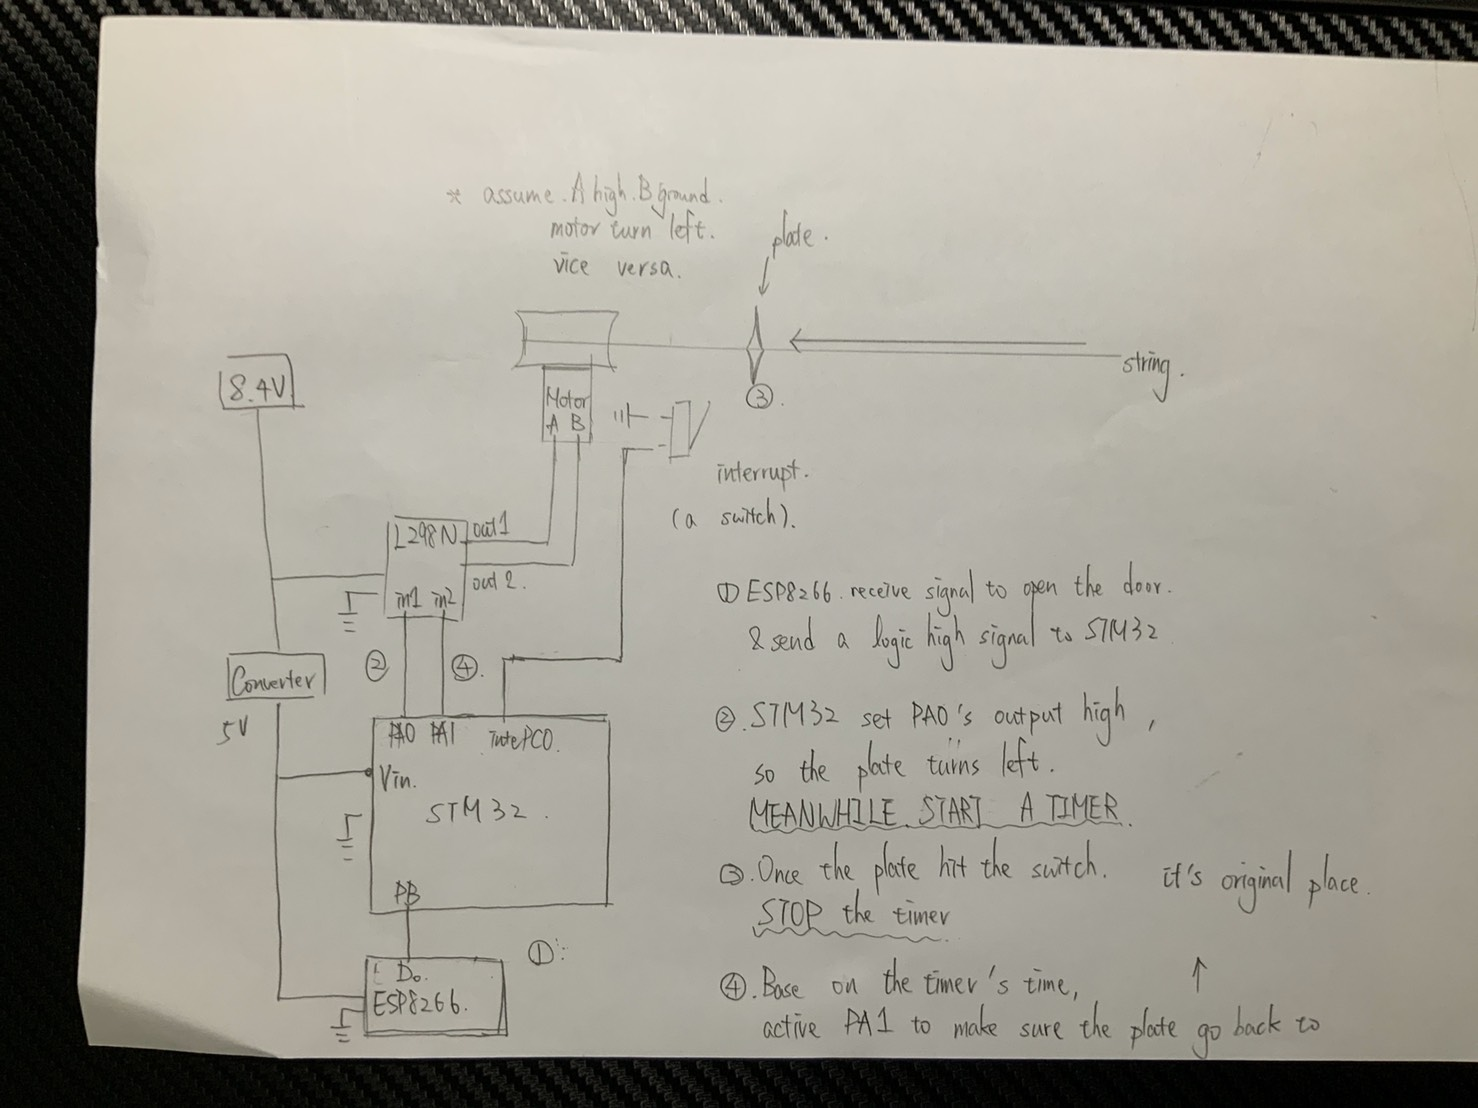 * assume. A high. B ground.
motor turn left.
vice versa.
plate.
string.
③.
8.4V
Motor
A B
interrupt.
(a switch).
L298N
out1
out2.
in1 in2
②
④.
Converter
5V
PA0 PA1 PC0.
Vin.
STM32.
PB
①
D0.
ESP8266.
① ESP8266. receive signal to open the door.
& send a logic high signal to STM32
②. STM32 set PA0's output high,
so the plate turns left.
MEANWHILE. START A TIMER.
③. Once the plate hit the switch.
STOP the timer
it's original place.
④. Base on the timer's time,
active PA1 to make sure the plate go back to